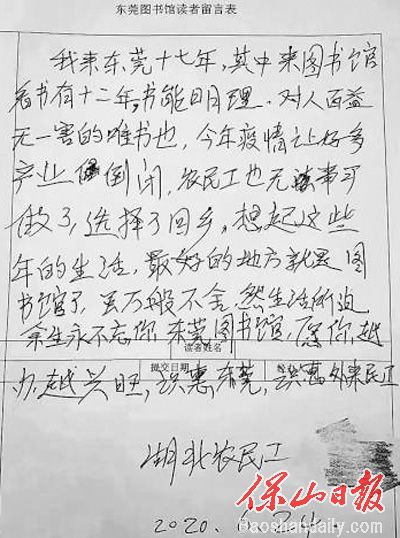 东莞图书馆读者留言表
我来东莞十七年,其中来图书馆
看书有十二年,书能明理,对人百益
无一害的唯书也,今年疫情让好多
产业倒闭,农民工也无事可
做了,选择了回乡,想起这些
年的生活,最好的地方就是图
书馆了,虽万般不舍,然生活所迫
余生永不忘你,东莞图书馆,愿你越
读者姓名
办越兴旺,识惠东莞,识惠外来民工
提交日期
湖北农民工
2020. 6. 24.
保山日报
Baoshandaily.com